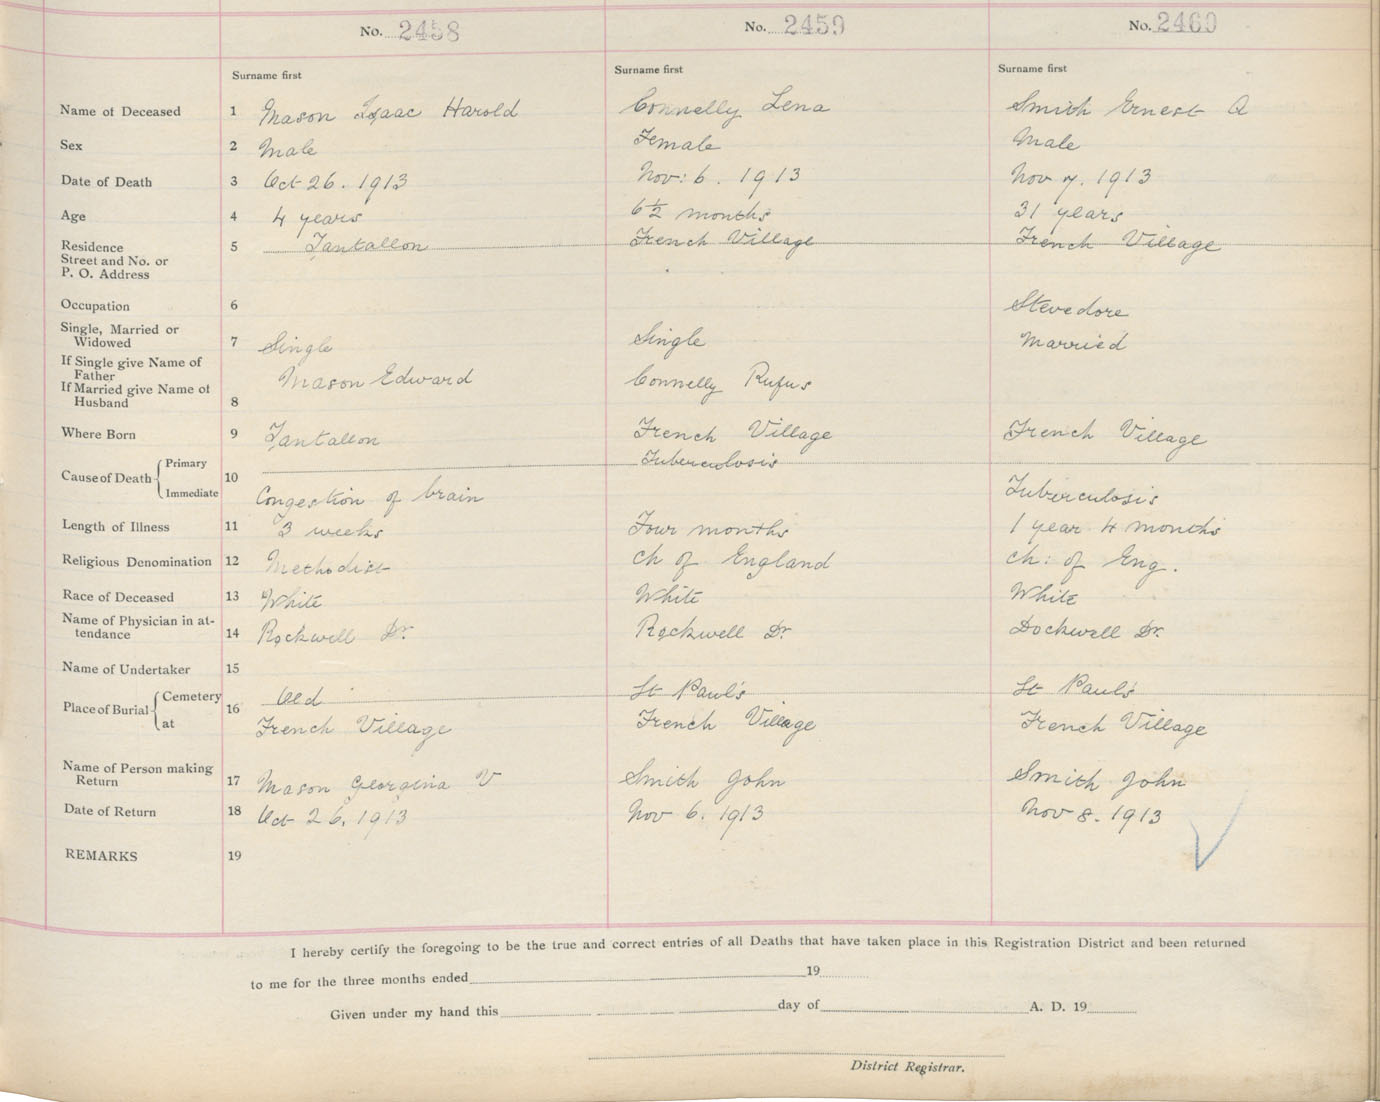 No. 2458 No. 2459 No. 2460
Surname first Surname first Surname first
Name of Deceased 1 Mason Isaac Harold Connelly Lena Smith Ernest A
Sex 2 Male Female Male
Date of Death 3 Oct 26. 1913 Nov: 6. 1913 Nov 7. 1913
Age 4 4 years 6½ months 31 years
Residence 5 Tantallon French Village French Village
Street and No. or
P. O. Address
Occupation 6 Stevedore
Single, Married or
Widowed 7 Single Single Married
If Single give Name of
Father Mason Edward Connelly Rufus
If Married give Name of
Husband 8
Where Born 9 Tantallon French Village French Village
Cause of Death Primary 10 Tuberculosis
Immediate Congestion of brain Tuberculosis
Length of Illness 11 3 weeks Four months 1 year 4 months
Religious Denomination 12 Methodist Ch of England Ch: of Eng.
Race of Deceased 13 White White White
Name of Physician in at-
tendance 14 Rockwell Dr. Rockwell Dr. Dockwell Dr.
Name of Undertaker 15
Place of Burial Cemetery 16 Old St Paul's St Paul's
at French Village French Village French Village
Name of Person making
Return 17 Mason Georgina V Smith John Smith John
Date of Return 18 Oct 26. 1913 Nov 6. 1913 Nov 8. 1913
REMARKS 19
I hereby certify the foregoing to be the true and correct entries of all Deaths that have taken place in this Registration District and been returned
to me for the three months ended 19
Given under my hand this day of A. D. 19
District Registrar.